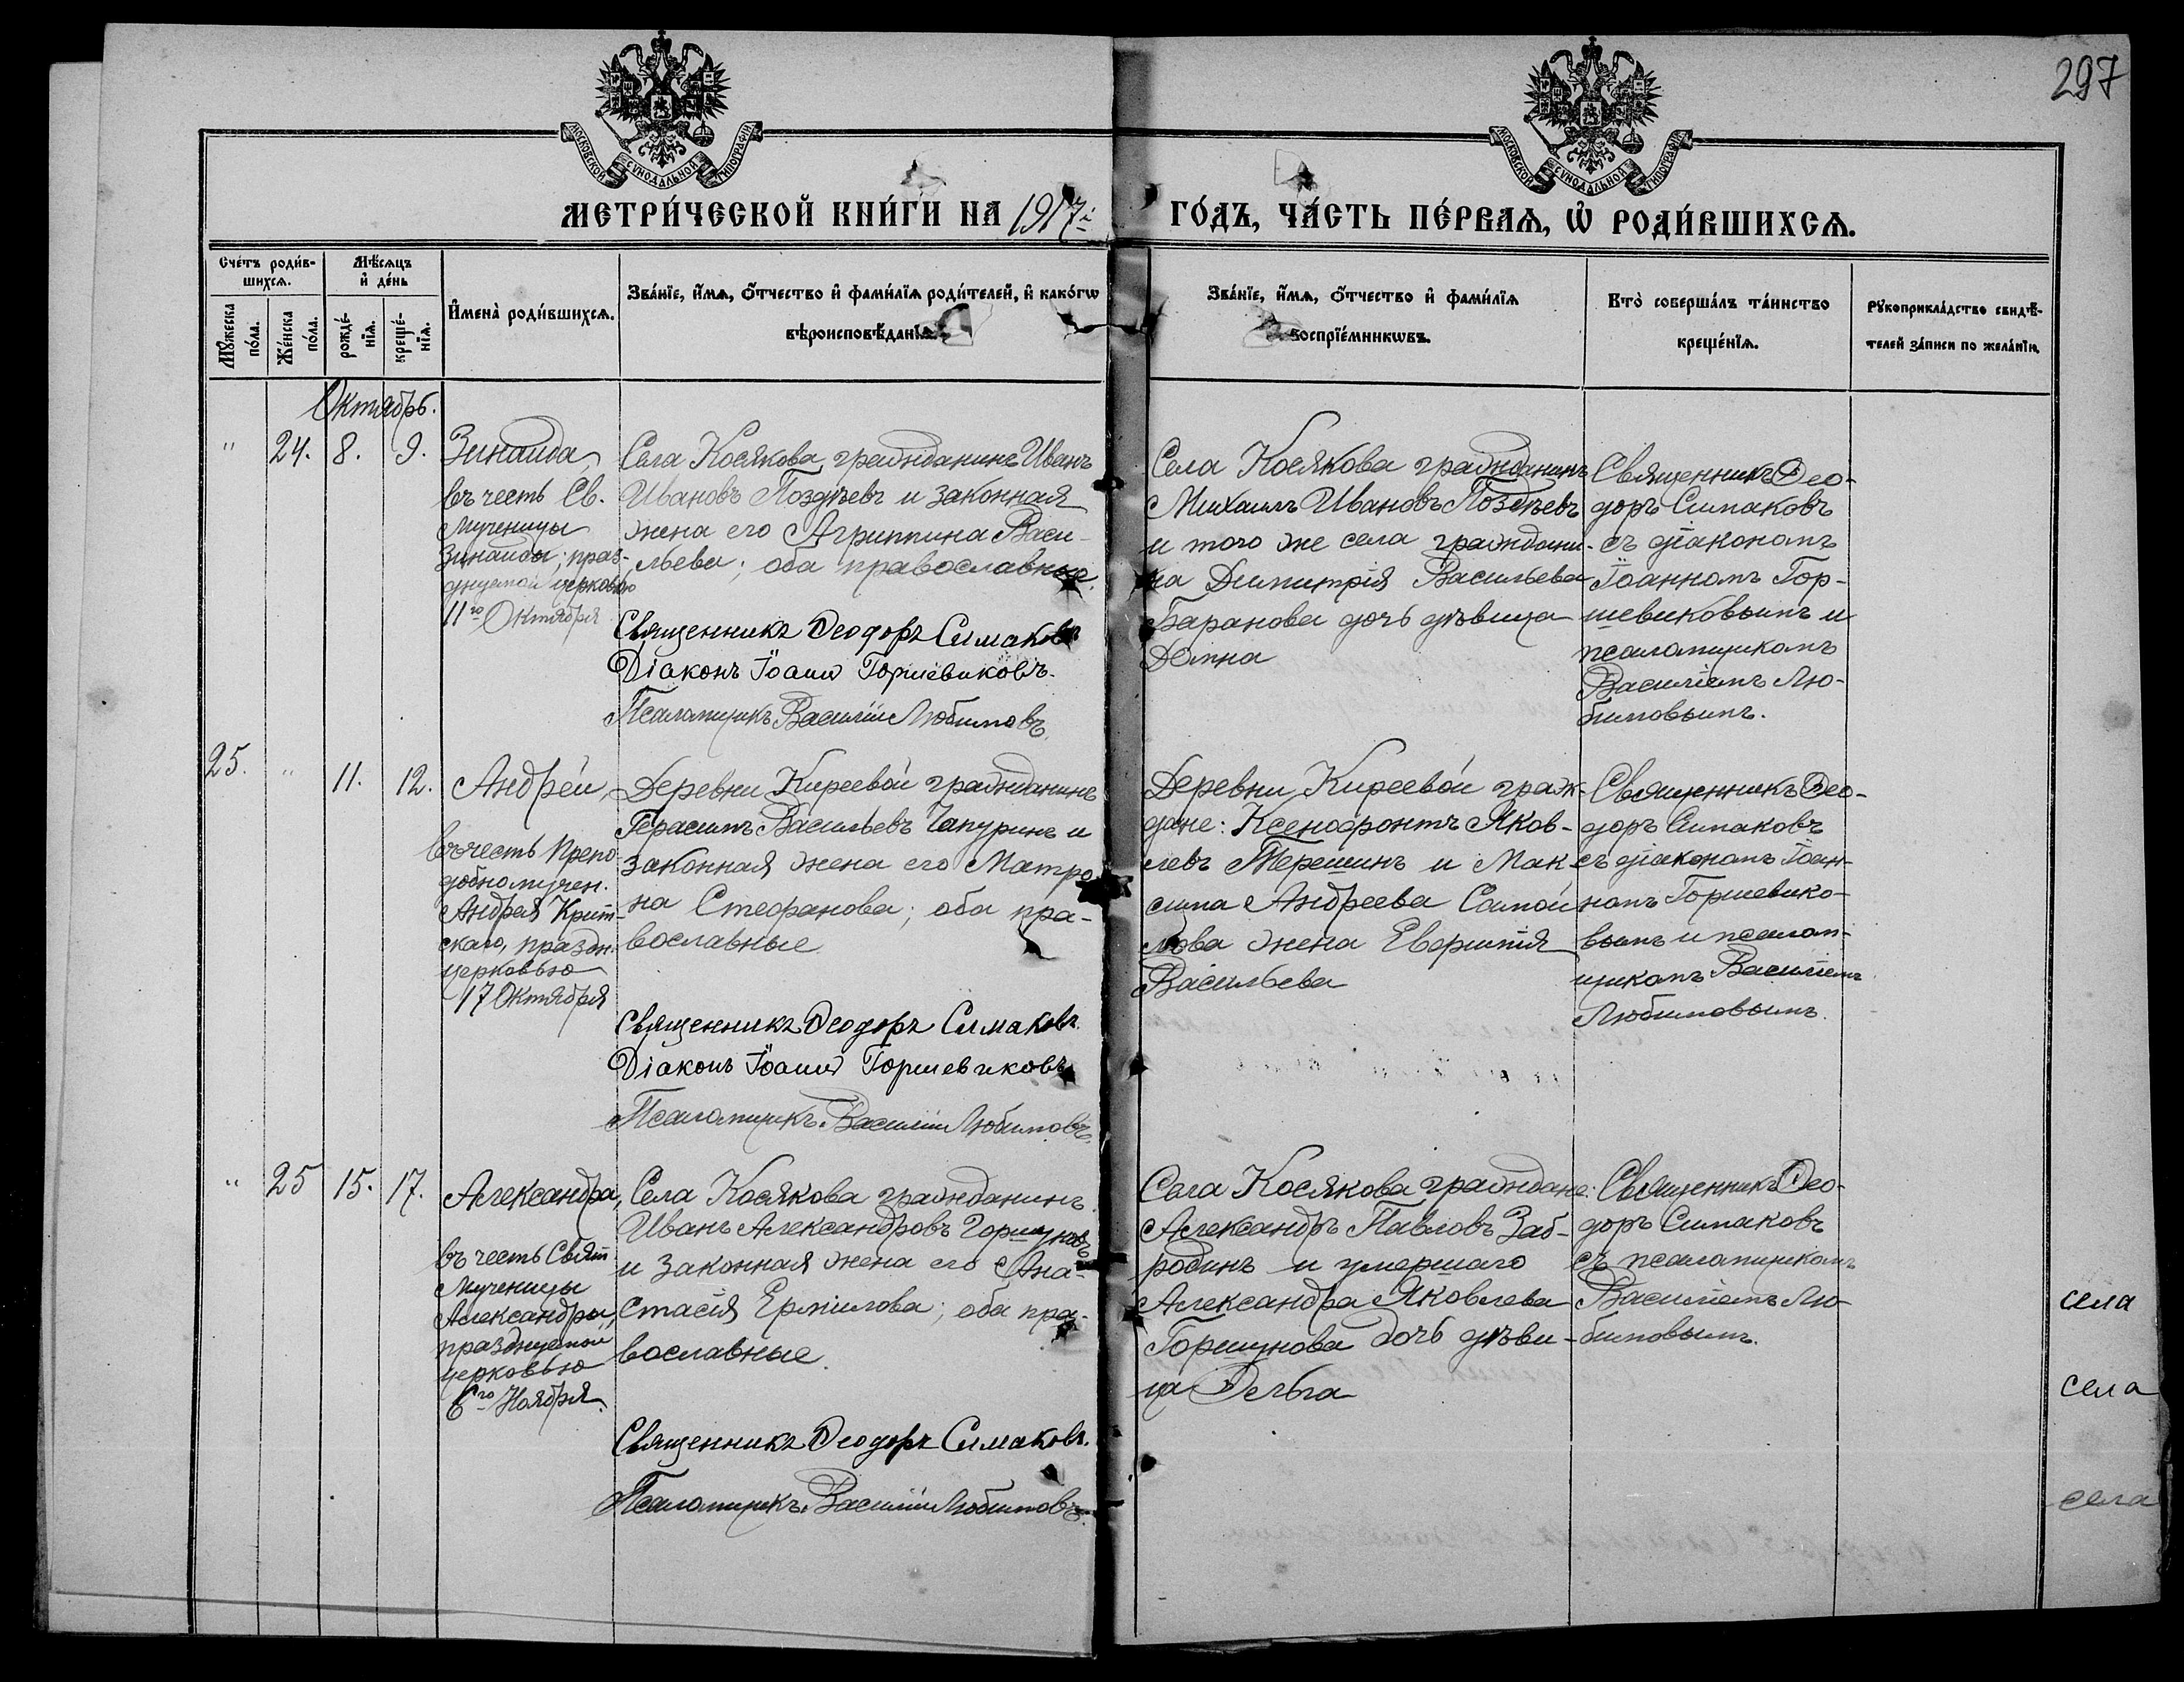 297
МОСКОВСКОЙ СѴНОДАЛЬНОЙ ТИПОГРАФІИ
МОСКОВСКОЙ СѴНОДАЛЬНОЙ ТИПОГРАФІИ
МЕТРИ́ЧЕСКОЙ КНИ́ГИ НА 1917й ГО́ДЪ, ЧА́СТЬ ПЕ́РВАѦ, Ѡ҆ РОДИ́ВШИХСѦ.
Сче́тъ роди́в-
шихсѧ.
Мꙋ́жеска
по́ла.
Же́нска
по́ла.
Мѣ́сѧцъ
и҆ де́нь
рожде́-
нїѧ.
креще́-
нїѧ.
И҆мена̀ роди́вшихсѧ.
Зва́нїе, и҆́мѧ, ѻ҆́тчество и҆ фами́лїѧ роди́телей, и҆ како́гѡ
вѣроисповѣ́данїѧ.
Зва́нїе, и҆́мѧ, ѻ҆́тчество и҆ фами́лїѧ
воспрїе́мникѡвъ.
Кто̀ соверша́лъ та́инство
креще́нїѧ.
Рꙋкоприкла́дство свидѣ́-
телей за́писи по жела́нїю.
Октябрь.
" 24. 8. 9.
Зинаида,
въ честь Св.
мученицы
Зинаиды; праз-
днуемой церковью
11го Октября
Села Косякова гражданинъ Иванъ
Ивановъ Поздѣевъ и законная
жена его Агриппина Васи-
льева; оба православные.
Священникъ Ѳеодоръ Симаковъ
Діаконъ Іоаннъ Горшевиковъ.
Псаломщикъ Василій Любимовъ.
Села Косякова гражданинъ
Михаилъ Ивановъ Поздѣевъ
и того же села граждани-
на Димитрія Васильева
Баранова дочь дѣвица
Домна
Священникъ Ѳео-
доръ Симаковъ
съ діакономъ
Іоанномъ Гор-
шевиковымъ и
псаломщикомъ
Василіемъ Лю-
бимовымъ.
25. " 11. 12.
Андрей,
въ честь Препо-
добномучен.
Андрея Крит-
скаго, праздн.
церковью
17 Октября
Деревни Киреевой гражданинъ
Герасимъ Васильевъ Чапуринъ и
законная жена его Матро-
на Стефанова; оба пра-
вославные
Священникъ Ѳеодоръ Симаковъ.
Діаконъ Іоаннъ Горшевиковъ
Псаломщикъ Василій Любимовъ.
Деревни Киреевой граж-
дане: Ксенофонтъ Яков-
левъ Терешинъ и Мак-
сима Андреева Самой-
лова жена Евфимія
Васильева
Священникъ Ѳео-
доръ Симаковъ
съ діакономъ Іоан-
номъ Горшевико-
вымъ и псалом-
щикомъ Василіемъ
Любимовымъ.
" 25 15. 17.
Александра,
въ честь Свят.
Мученицы
Александры,
празднуемой
церковью
6го Ноября.
Села Косякова гражданинъ
Иванъ Александровъ Горшуновъ
и законная жена его Ана-
стасія Ермилова; оба пра-
вославные.
Священникъ Ѳеодоръ Симаковъ.
Псаломщикъ Василій Любимовъ.
Села Косякова граждане:
Александръ Павловъ Заб-
родинъ и умершаго
Александра Яковлева
Горшунова дочь дѣви-
ца
Священникъ Ѳео-
доръ Симаковъ
съ псаломщикомъ
Василіемъ Лю-
бимовымъ.
села
села
села